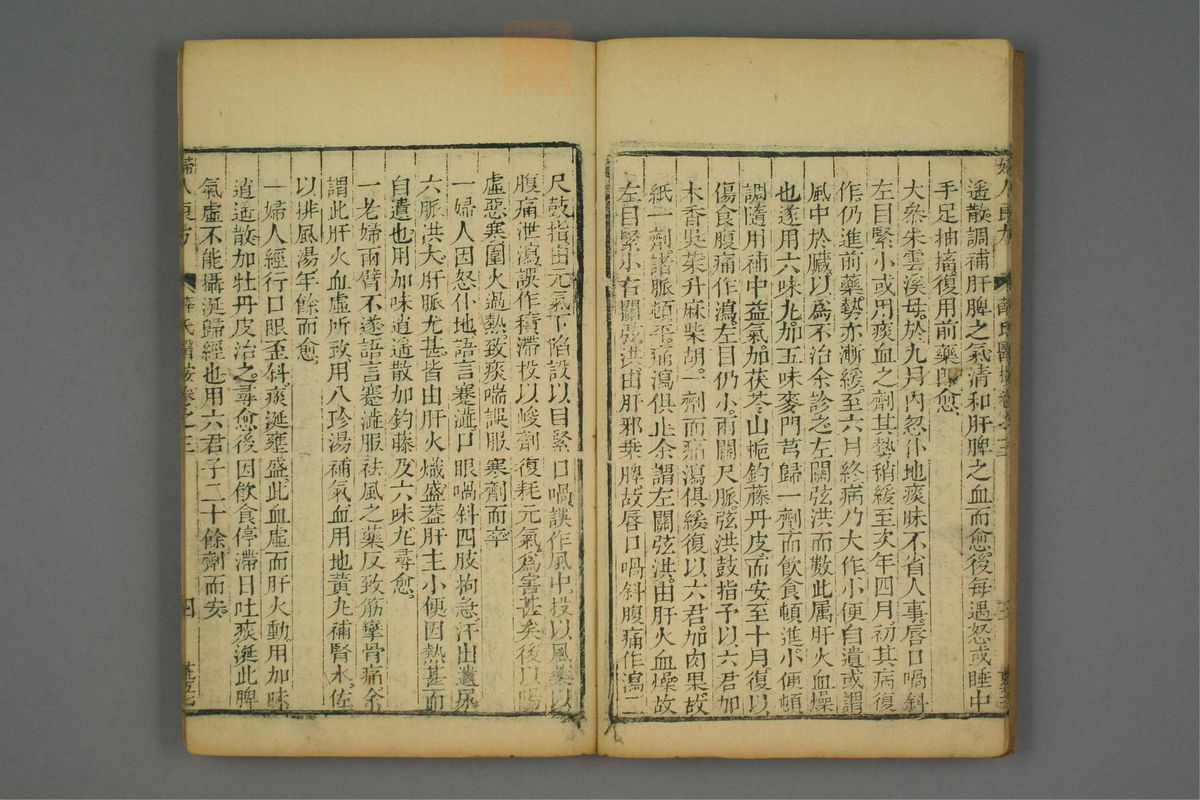 遥散調補肝脾之氣清和肝脾之血而愈後每遇怒或睡中
手足抽搐復用前藥即愈
大參朱雲溪母於九月內忽仆地痰昧不省人事唇口喎斜
左目緊小或用痰血之劑其勢稍緩至次年四月初其病復
作仍進前藥勢亦漸緩至六月終病乃大作小便自遺或謂
風中於臟以爲不治余診之左關弦洪而數此属肝火血燥
也遂用六味丸加五味麥門芎歸一劑而飲食頓進小便頓
調隨用補中益氣加茯苓山梔釣藤丹皮而安至十月復以
傷食腹痛作瀉左目仍小兩關尺脈弦洪鼓指予以六君加
木香吳茱升麻柴胡一劑而痛瀉俱緩復以六君加肉果故
紙一劑諸脈頓平痛瀉俱止余謂左關弦洪由肝火血燥故
左目緊小右關弦洪由肝邪乗脾故唇口喎斜腹痛作瀉二
尺鼓指由元氣下陷設以目緊口喎誤作風中投以風藥以
腹痛泄瀉誤作積滯投以峻劑復耗元氣爲害甚矣後以陽
虛惡寒圍火過熱致痰喘誤服寒劑而卒
一婦人因怒仆地語言蹇澁口眼喎斜四肢拘急汗出遺尿
六脈洪大肝脈尤甚皆由肝火熾盛葢肝主小便因熱甚而
自遺也用加味逍遥散加釣藤及六味丸尋愈
一老婦兩臂不遂語言蹇澁服祛風之藥反致筋攣骨痛余
謂此肝火血虛所致用八珍湯補氣血用地黃丸補腎水佐
以排風湯年餘而愈
一婦人經行口眼歪斜痰涎壅盛此血虛而肝火動用加味
逍遥散加牡丹皮治之尋愈後因飲食停滯日吐痰涎此脾
氣虛不能攝涎歸經也用六君子二十餘劑而安
婦人良方
薛氏醫按卷之三
四